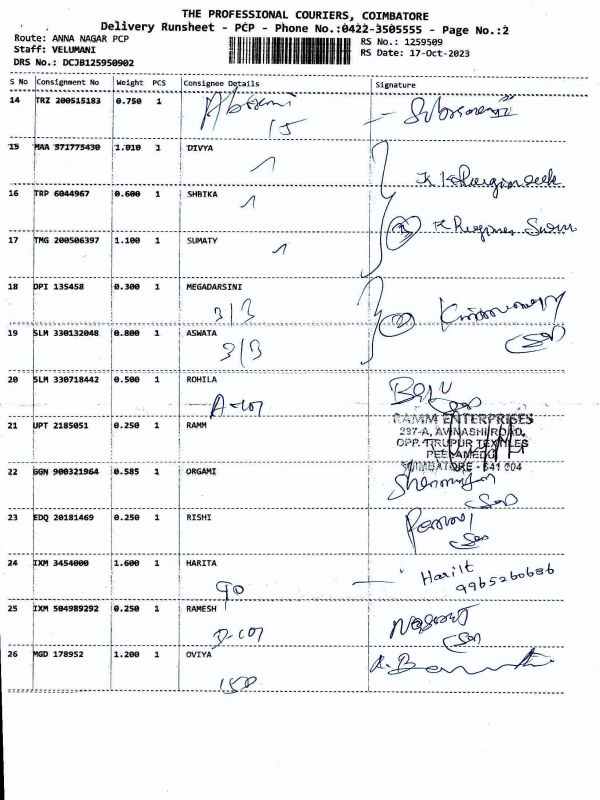 THE PROFESSIONAL COURIERS, COIMBATORE
Delivery Runsheet - PCP - Phone No.:0422-3505555 - Page No.:2
Route: ANNA NAGAR PCP
RS No.: 1259509
Staff: VELUMANI
RS Date: 17-Oct-2023
DRS No.: DCJB125950902
S No Consignment No Weight PCS Consignee Details Signature
14 TRZ 200515183 0.750 1
15
15 MAA 571775430 1.010 1 DIVYA
16 TRP 6044967 0.600 1 SHBIKA
17 TMG 200506397 1.100 1 SUMATY
18 DPI 135458 0.300 1 MEGADARSINI
3/3
19 SLM 330132048 0.800 1 ASWATA
3/3
20 SLM 330718442 0.500 1 ROHILA
A-107
21 UPT 2185051 0.250 1 RAMM
RAMM ENTERPRISES
297-A, AVINASHI ROAD,
OPP. TIRUPUR TEXTILES
PEELAMEDU
COIMBATORE - 641 004
22 GGN 900321964 0.585 1 ORGAMI
23 EDQ 20181469 0.250 1 RISHI
24 IXM 3454000 1.600 1 HARITA
90
Harilt
9965260686
25 IXM 504989292 0.250 1 RAMESH
D-107
26 MGD 178952 1.200 1 OVIYA
150